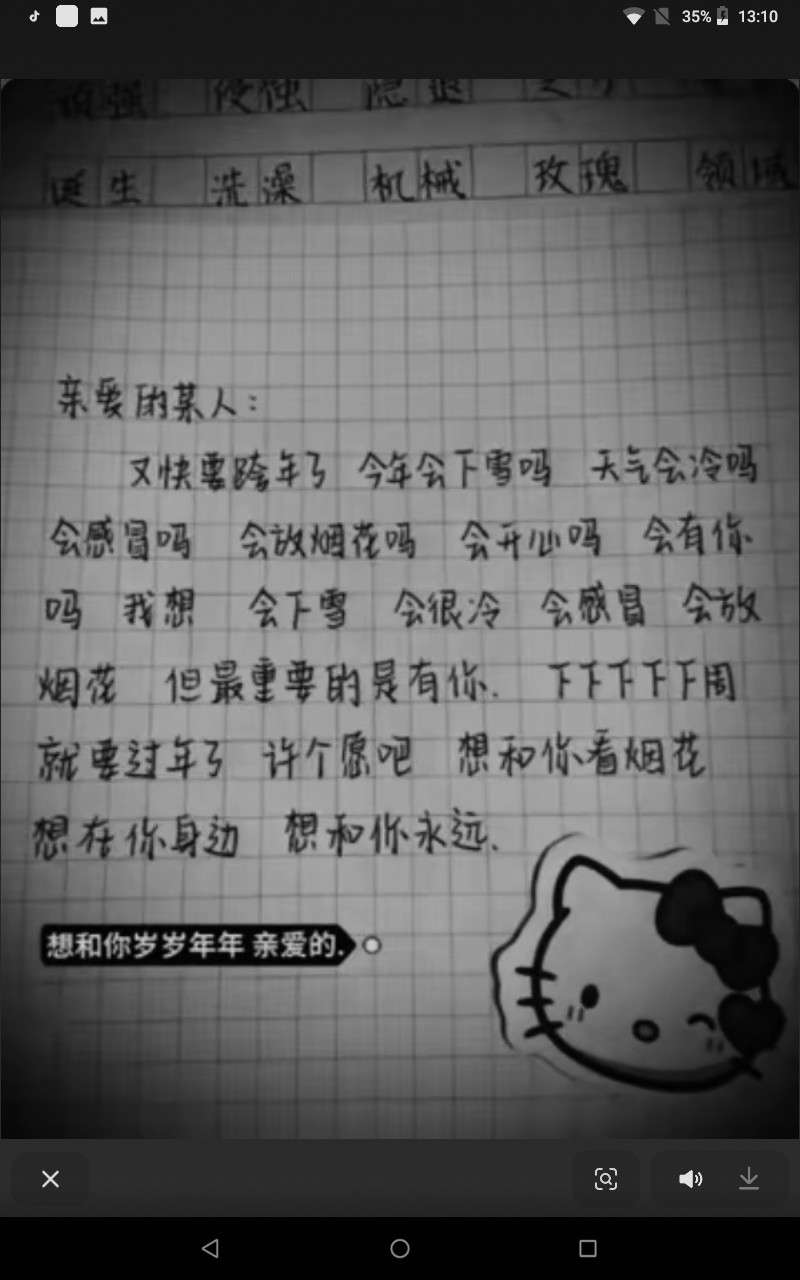 35% 13:10
顽强 侵蚀 隐退
诞生 洗澡 机械 玫瑰 领域
亲爱的某人：
又快要跨年了 今年会下雪吗 天气会冷吗
会感冒吗 会放烟花吗 会开心吗 会有你
吗 我想 会下雪 会很冷 会感冒 会放
烟花 但最重要的是有你. 下下下下下周
就要过年了 许个愿吧 想和你看烟花
想在你身边 想和你永远.
想和你岁岁年年 亲爱的.